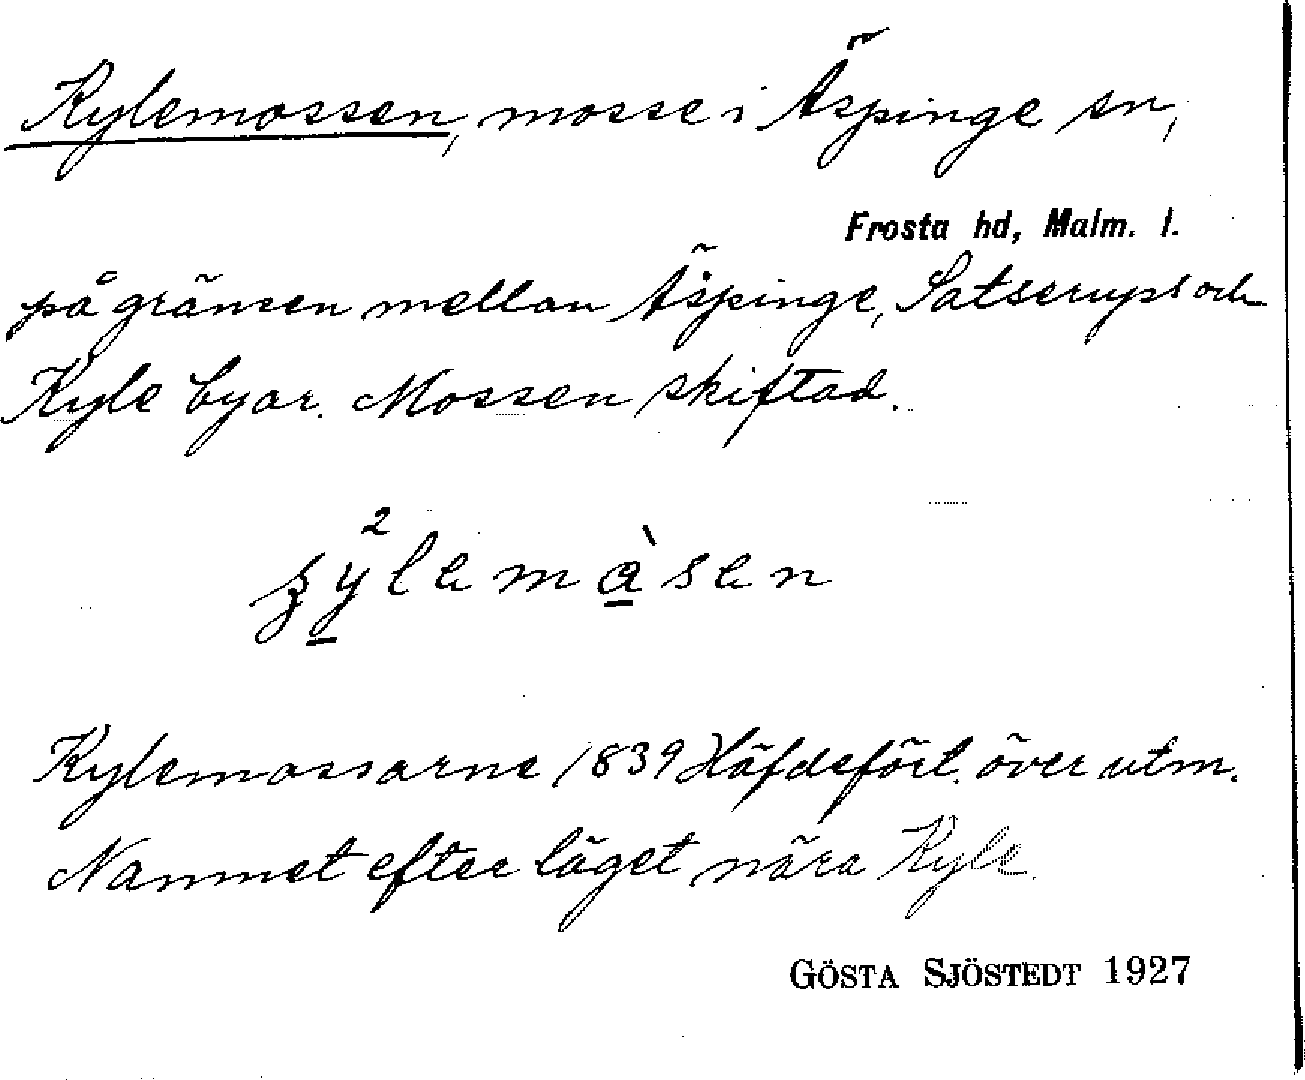 Kylemossen, mosse i Äspinge sn,
Frosta hd, Malm. l.
på gränsen mellan Äspinge, Satserups och
Kyle byar. Mossen skiftad.
Kylemossarne 1839 Häfdeförl. över utm.
Namnet efter läget nära Kyle.
GÖSTA SJÖSTEDT 1927